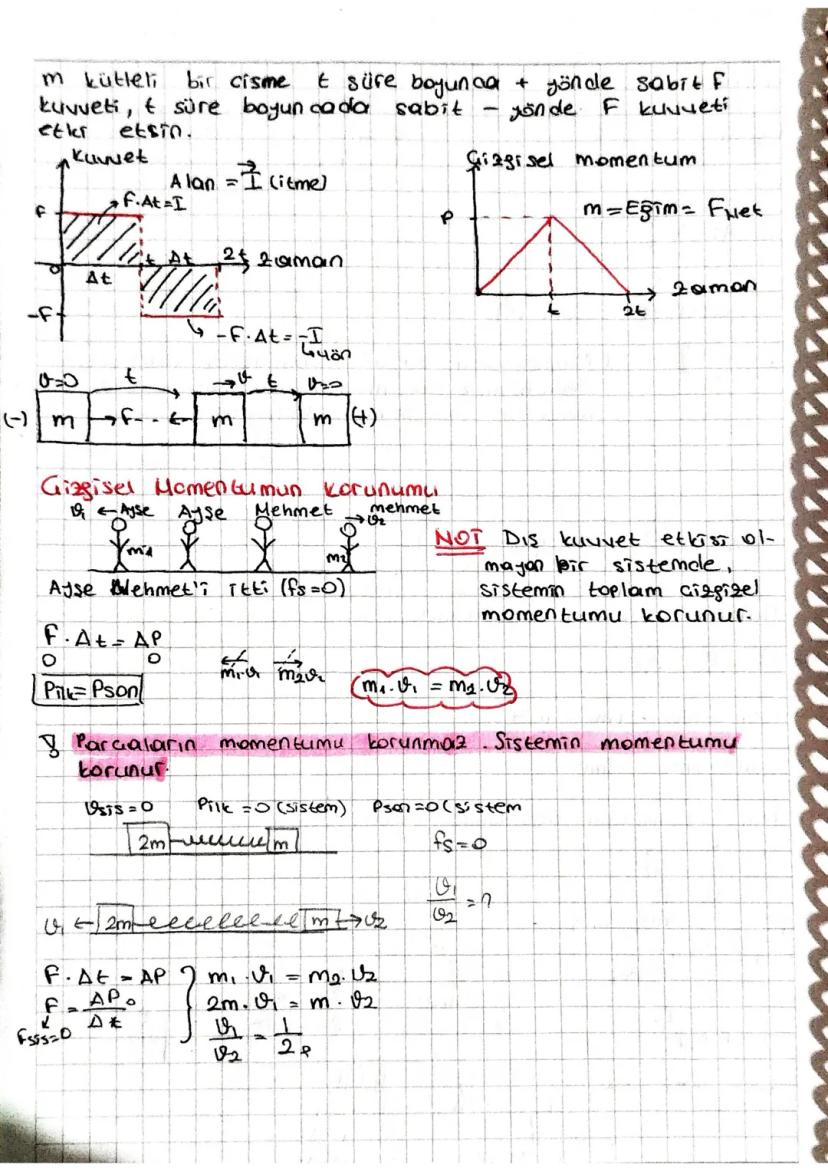 m kütleli bir cisme t süre boyunca + yönde sabit F
kuvveti, t süre boyuncada sabit - yönde F kuvveti
etki etsin.
Kuvvet
Alan = I (itme)
F.Δt=I
F
0
-F
Δt
t
Δt
2t
zaman
-F.Δt = -I
yön
Çizgisel momentum
P
m = Eğim = Fnet
t
2t
zaman
ϑ=0 t →ϑ t ϑ=0
(-) m →F-.. ← m m (+)
Çizgisel Momentumun Korunumu
ϑ₁ ← Ayşe Ayşe Mehmet mehmet
→ϑ₂
m₁ m₂
Ayşe Mehmet'i itti (fs=0)
NOT Dış kuvvet etkisi ol-
mayan bir sistemde,
sistemin toplam çizgizel
momentumu korunur.
F.Δt = ΔP
0 0
Pilk = Pson
m₁.ϑ₁ m₂ϑ₂
m₁.ϑ₁ = m₂.ϑ₂
Parçaların momentumu korunmaz. Sistemin momentumu
korunur.
ϑsis=0 Pilk =0 (sistem) Pson=0 (sistem
2m m
fs=0
ϑ₁/ϑ₂ = ?
ϑ₁ ← 2m m → ϑ₂
F.Δt = ΔP
F = ΔP/Δt 0
Fsis=0
m₁.ϑ₁ = m₂.ϑ₂
2m.ϑ₁ = m.ϑ₂
ϑ₁/ϑ₂ = 1/2